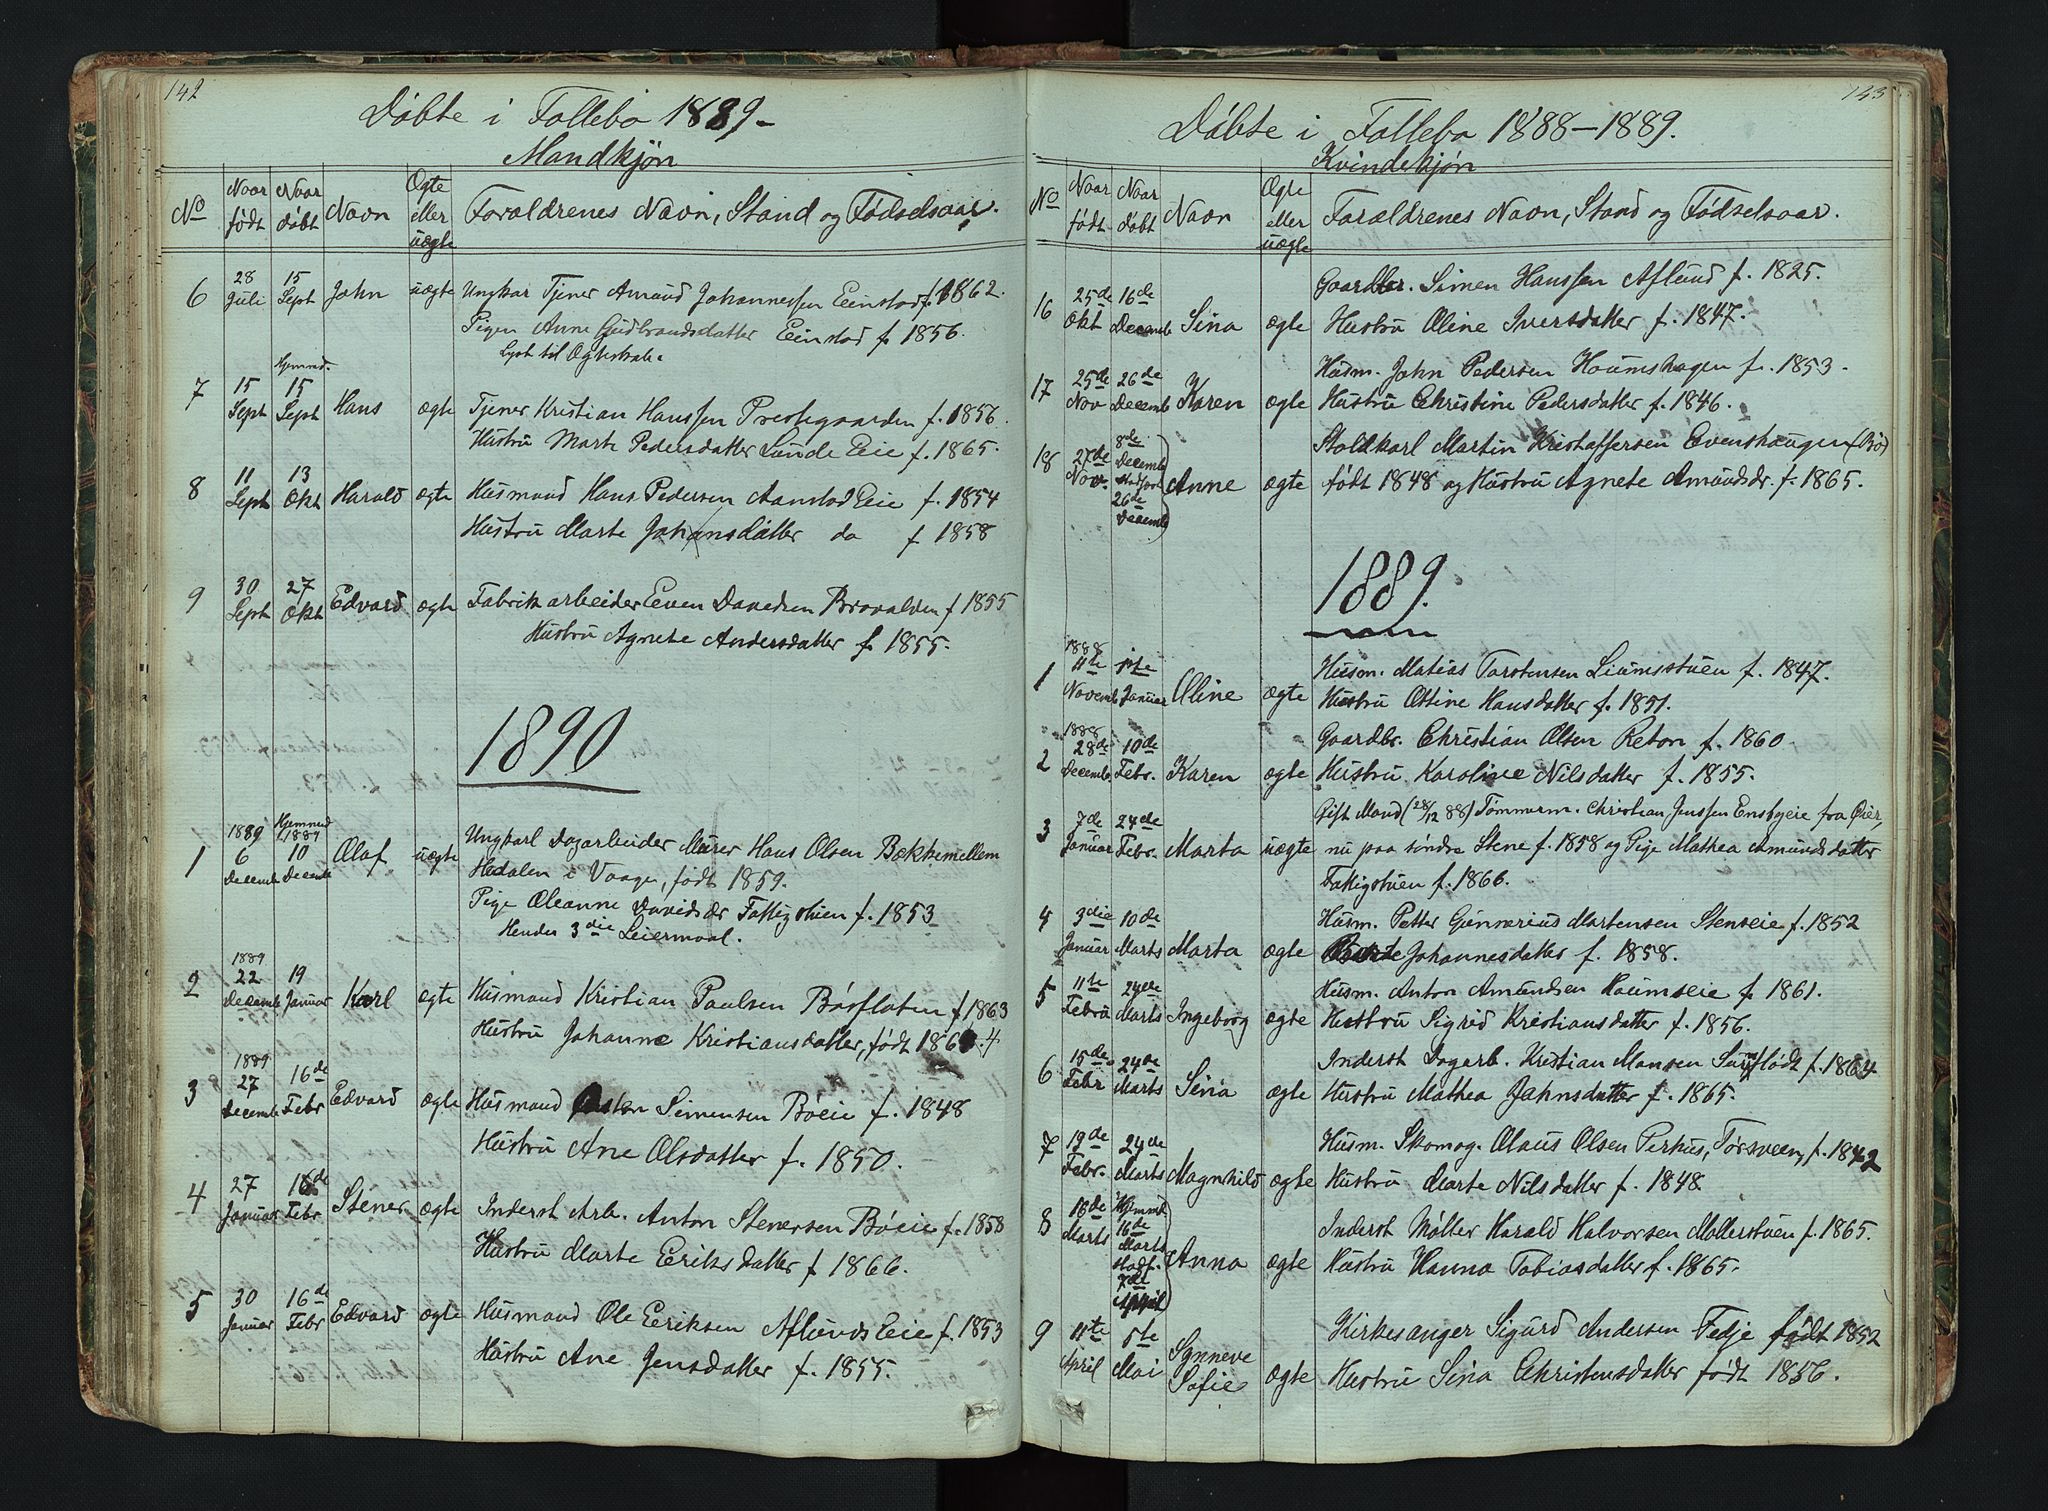 142
Döbte i Follebo 1889-
Mandkjøn
No
Naar født
Naar döbt
Navn
Ægte eller uægte
Forældrenes Navn, Stand og Fødselsaar.
6 28 Juli 15 Sept John uægte Ungkar Tjener Amund Johannessen Einstad f. 1862.
Pigen Anne Gudbrandsdatter Einstad f. 1856.
Lyst til Ægteskab.
Hjemmed.
7 15 Sept 15 Sept Hans ægte Tjener Kristian Hanssen Prestegaarden f. 1856.
Hustru Marte Pedersdatter Lunde Eie f. 1865.
8 11 Sept 13 Okt Harald ægte Husmand Hans Pedersen Aamstad Eie f. 1854
Hustru Marte Johansdatter do f 1858
9 30 Sept 27 Okt Edvard ægte Fabrikarbeider Even Davedsen Brovalden f 1855
Hustru Agnete Andersdatter f. 1855.
1890
1 1889 6 Decemb Hjemmed 1889 10 Decemb Olaf uægte Ungkarl Dagarbeider Murer Hans Olsen Bekkemellem
Hedalen i Vaage, født 1859.
Pige Oleanne Davidsdr Fattigstuen f. 1853
Hendes 3die Leiermaal.
2 1889 22 Decemb 19 Januar Karl ægte Husmand Kristian Paulsen Börflaten f. 1863
Hustru Johanne Kristiansdatter, født 186 4
3 1889 27 Decemb 16de Febr Edvard ægte Husmand Simensen Böeie f. 1848
Hustru Ane Olsdatter f. 1850.
4 27 Januar 16de Febr Stener ægte Inderst Arb. Anton Stenersen Böeie f. 1858
Hustru Marte Eriksdatter f 1866.
5 30 Januar 16de Febr Edvard ægte Husmand Ole Eriksen Aflunds Eie f. 1853
Hustru Ane Jensdatter f. 1855.
143
Döbte i Follebo 1888-1889.
Kvindekjøn
No
Naar født
Naar döbt
Navn
Ægte eller uægte
Forældrenes Navn, Stand og Fødselsaar.
Gaardbr. Simen Hanssen Aflund f. 1825.
16 25de Okt 16de Decemb Sina ægte Hustru Oline Iversdatter f. 1847.
Husm. John Pedersen Houmshagen f. 1853.
17 25de Nov 26de Decemb Karen ægte Hustru Christine Pedersdatter f. 1846.
Staldkarl Martin Kristoffersen Evenshaugen (Bö)
18 27de Nov. 8de Decemb 26de Decemb Anne ægte født 1848 og Hustru Agnete Amundsdr. f. 1865.
1889.
1 1888 11te Novemb 1ste Januar Oline ægte Husm. Matias Torstensen Liumsstuen f. 1847.
Hustru Ottine Hansdatter f. 1851.
2 1888 28de Decemb 10de Febr. Karen ægte Gaardbr. Christian Olsen Reton f. 1860.
Hustru Karoline Nilsdatter f. 1855.
3 7de Januar 24de Febr. Marta uægte Gift Mand (28/12 88) Tømmerm. Christian Jenssen Ensbyeie fra Øier,
nu paa søndre Stene f. 1858 og Pige Mathea Amundsdatter
Fattigstuen f. 1866.
4 3die Januar 10de Marts Marta ægte Husm. Petter Gunnerius Martensen Stenseie f. 1852
Johannesdatter f. 1858.
5 11te Febru 24de Marts Ingeborg ægte Husm. Anton Amundsen Houmseie f. 1861.
Hustru Sigrid Kristiansdatter f. 1856.
6 15de Febr 24de Marts Sina ægte Inderst Dagarb. Kristian Mansen født f. 1864
Hustru Mathea Johnsdatter f. 1865.
7 19de Febr. 24de Marts Magnhild ægte Husm. Skomag. Olaus Olsen Perhus, Torsveen, f. 1842
Hustru Marte Nilsdatter f. 1848.
8 16de Marts Hjemmd 16de Marts stadf. 7de April Anna ægte Inderst Møller Harald Halvorsen Møllerstuen f. 1865.
Hustru Hanna Tobiasdatter f. 1865.
9 11te April 5te Mai Synneve Sofie ægte Kirkesanger Sigurd Andersen Fedje født 1852
Hustru Sina Christensdatter født 1856.